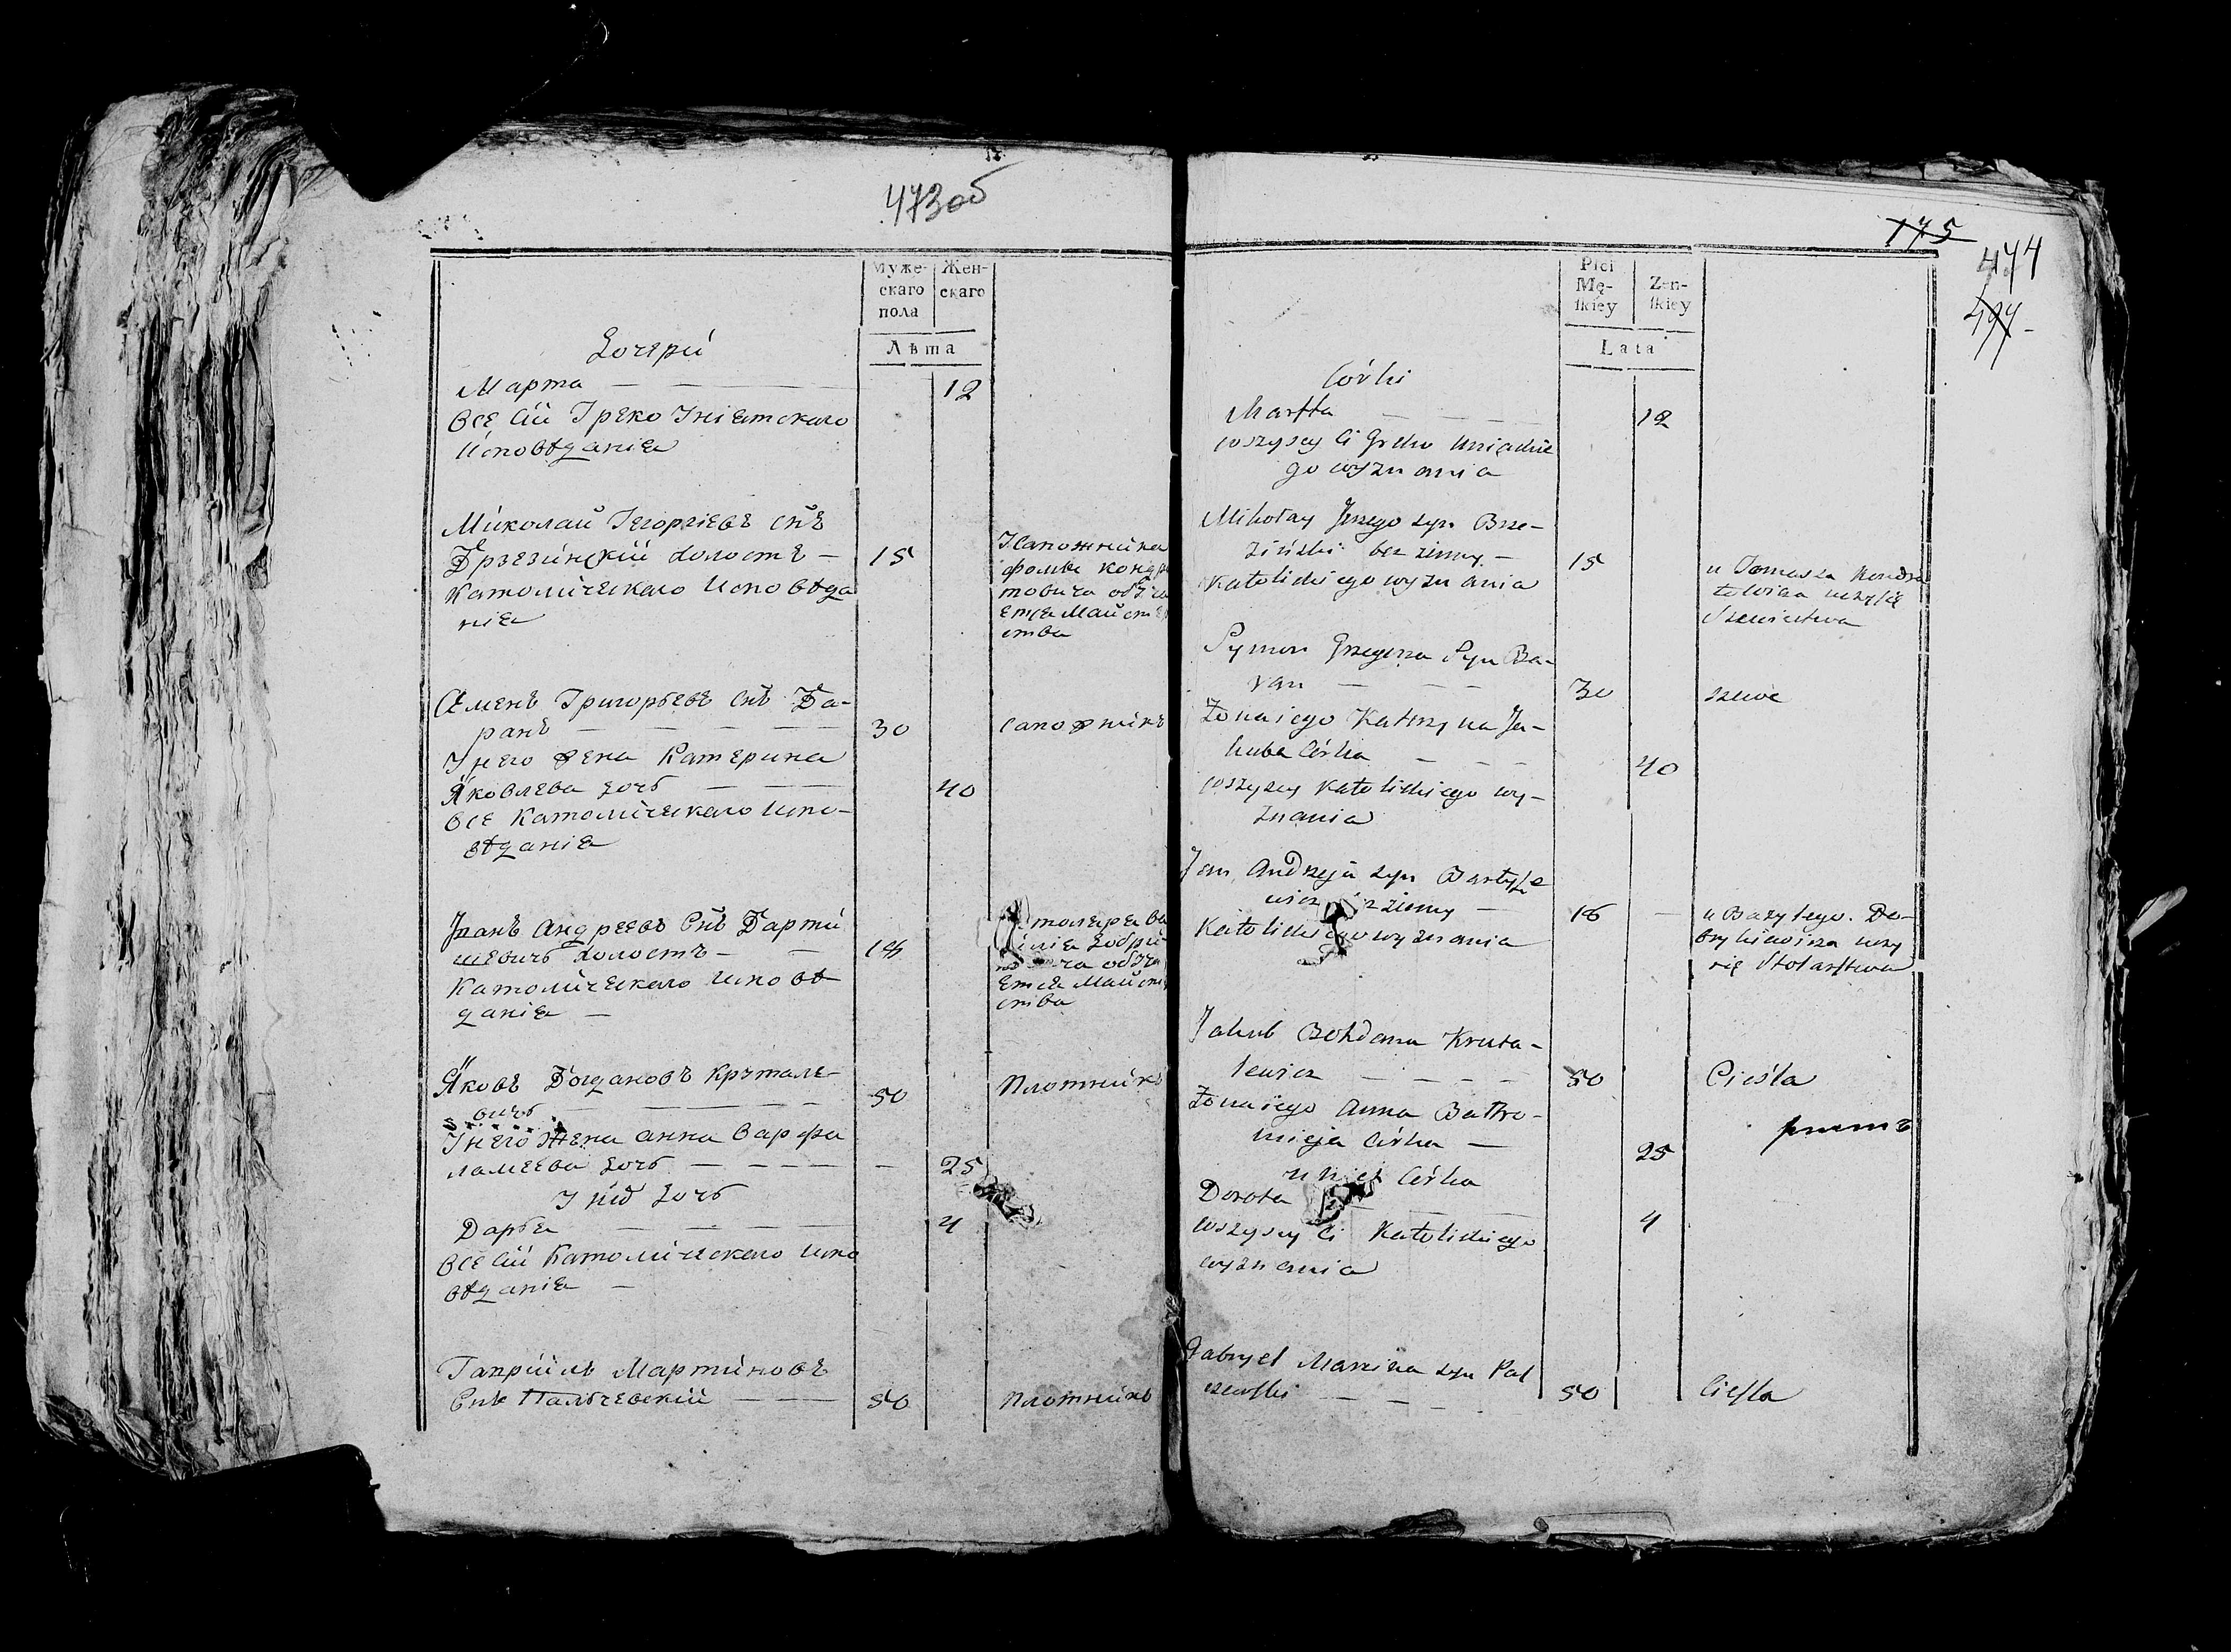 473об
Муже-
скаго
пола
Жен-
скаго
Лѣта
Дочери
Марта — — — 12
Всѣ сии Греко Униятскаго
Исповѣдания
Миколай Егоргіевъ снъ
Бржезинскій холостъ — 15
Католическаго Исповѣда
нія
У Сапожника
фомы
товича
етса Май
ства
Семенъ Григорьевъ снъ Ба-
ранъ — — — 30 Сапожникъ
У него жена Катерина
Яковлева дочь — — 40
Все Католическаго Испо-
вѣданія
Иванъ Андреевъ Снъ Барти
шевичъ холостъ — — 18
Католическаго Исповѣ-
данія —
етса Май
ства
Яковъ Богдановъ Круталe-
вичъ — — — 50 Плотникъ
У него Жена Анна Варфа
ламеева дочь — — — — 25
У них дочь
Дарья — — — — 4
Все сии Католическаго Испо
вѣданія —
Гаприиль Мартиновъ
Снъ Пальчевскій — — 50 Плотникъ
175
474
Płci
Mę-
ſkiéy
Żen-
ſkiéy
Lata
Córki
Martta — — — 12
wszyscy ci Greko Uniackie
go wyznania
Mikołay Jerzego syn Brze-
ziński bez żenny — 15
Katolickiego wyznania
u Tomasza Kondra
towicza uczy się
Szewiectwa
Symon Grzegorza Syn Ba-
ran — — — 30 szewc
Żona iego Katrzyna Ja-
kuba Córka — — — 40
wszyscy Katolickiego wy-
znania
Jan Andrzeja syn Bartysze
wicz żenny — 16 —
Katolickiego wyznania
u Bazylego Do-
brylewicza uczy
się Stolarstwa
Jakub Bohdana Kruta-
lewicz — — — — 50 Cieśla
Żona iego Anna Bałtro-
mieja Córka — 25
u nich Córka
Dorota — — 4
wszyscy ci Katolickiego
wyznania
Gabryel Marcina syn Pal
czewski — — — 50 Cieśla